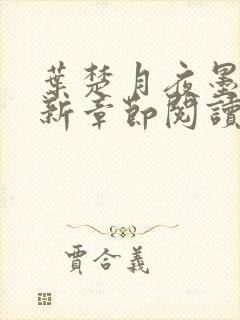 葉楚月夜墨
新章節閱讀
賈合義